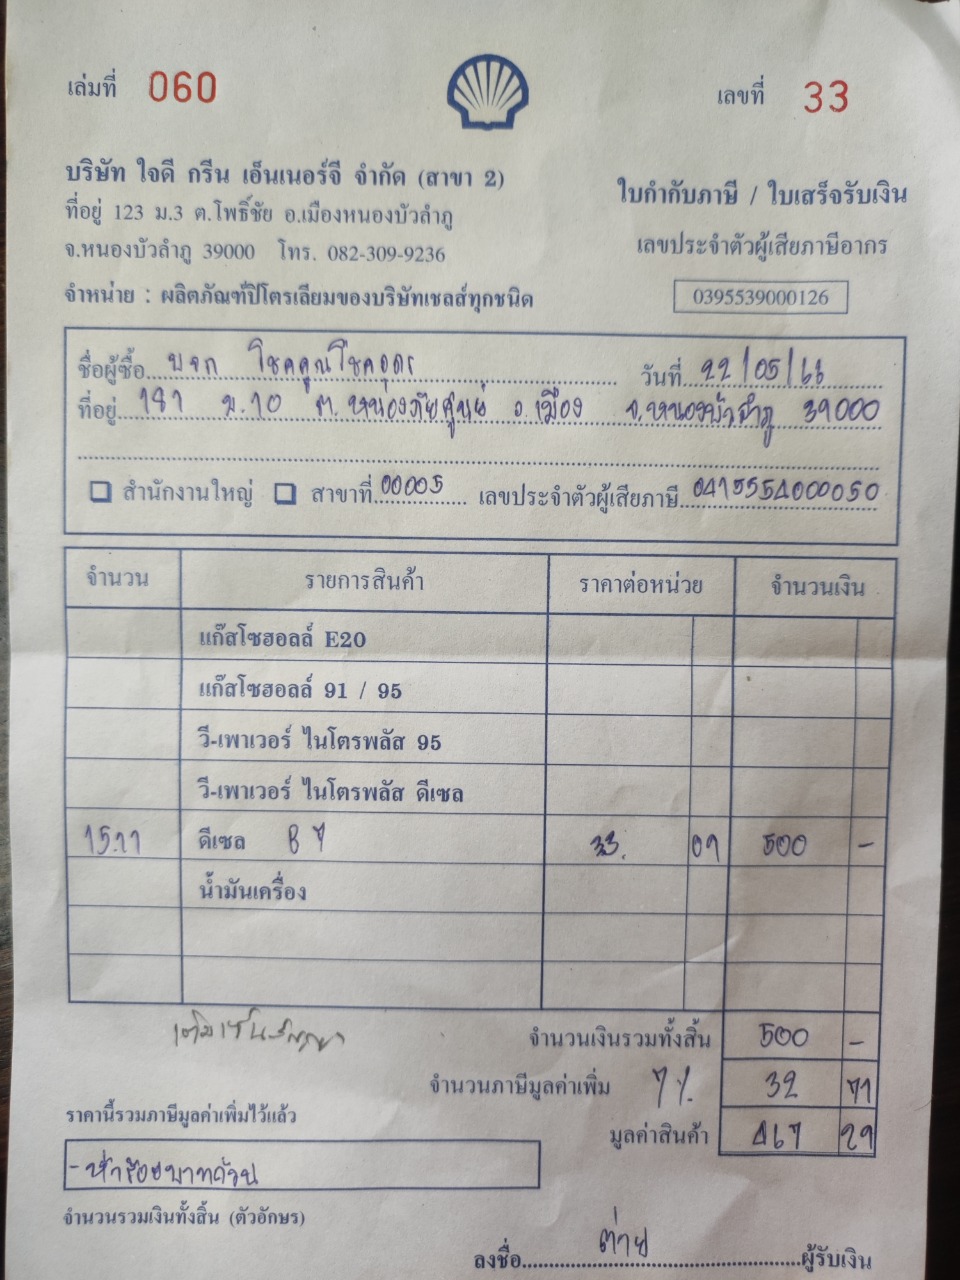 เล่มที่ 060 เลขที่ 33
บริษัท ใจดี กรีน เอ็นเนอร์จี จำกัด (สาขา 2)
ใบกำกับภาษี / ใบเสร็จรับเงิน
ที่อยู่ 123 ม.3 ต.โพธิ์ชัย อ.เมืองหนองบัวลำภู
เลขประจำตัวผู้เสียภาษีอากร
จ.หนองบัวลำภู 39000 โทร. 082-309-9236
จำหน่าย : ผลิตภัณฑ์ปิโตรเลียมของบริษัทเชลส์ทุกชนิด
0395539000126
ชื่อผู้ซื้อ บจก โชคคูณโชคอุดร วันที่ 22/05/66
ที่อยู่ 181 ม.10 ต.หนองภัยศูนย์ อ.เมือง จ.หนองบัวลำภู 39000
สำนักงานใหญ่ สาขาที่ 00005 เลขประจำตัวผู้เสียภาษี 0415554000050
จำนวน รายการสินค้า ราคาต่อหน่วย จำนวนเงิน
แก๊สโซฮอลล์ E20
แก๊สโซฮอลล์ 91 / 95
วี-เพาเวอร์ ไนโตรพลัส 95
วี-เพาเวอร์ ไนโตรพลัส ดีเซล
15.11 ดีเซล B 7 33. 09 500 -
น้ำมันเครื่อง
จำนวนเงินรวมทั้งสิ้น 500 -
จำนวนภาษีมูลค่าเพิ่ม 7% 32 71
ราคานี้รวมภาษีมูลค่าเพิ่มไว้แล้ว
มูลค่าสินค้า 467 29
- ห้าร้อยบาทถ้วน
จำนวนรวมเงินทั้งสิ้น (ตัวอักษร)
ลงชื่อ ต่าย ผู้รับเงิน